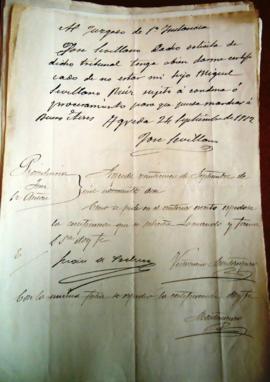 Al Juzgado de 1ª Instancia
José Sevillano Pedro solicita de
dicho tribunal tenga abien darme certifi
cado de no estar mi hijo Miguel
Sevillano Ruiz sujeto á condena ó
procesamiento para que pueda marchar á
Buenos Aires Agreda 24 Septiembre de 1912
José Sevillano
Providencia
Juez
Agreda veinticinco de Septiembre de
mil novecientos doce
Como se pide en el anterior escrito expidase
la certificacion que se solicita Lo mando y firma
S Sria doy fe
Con la misma fecha se expidió la certificacion doy fe